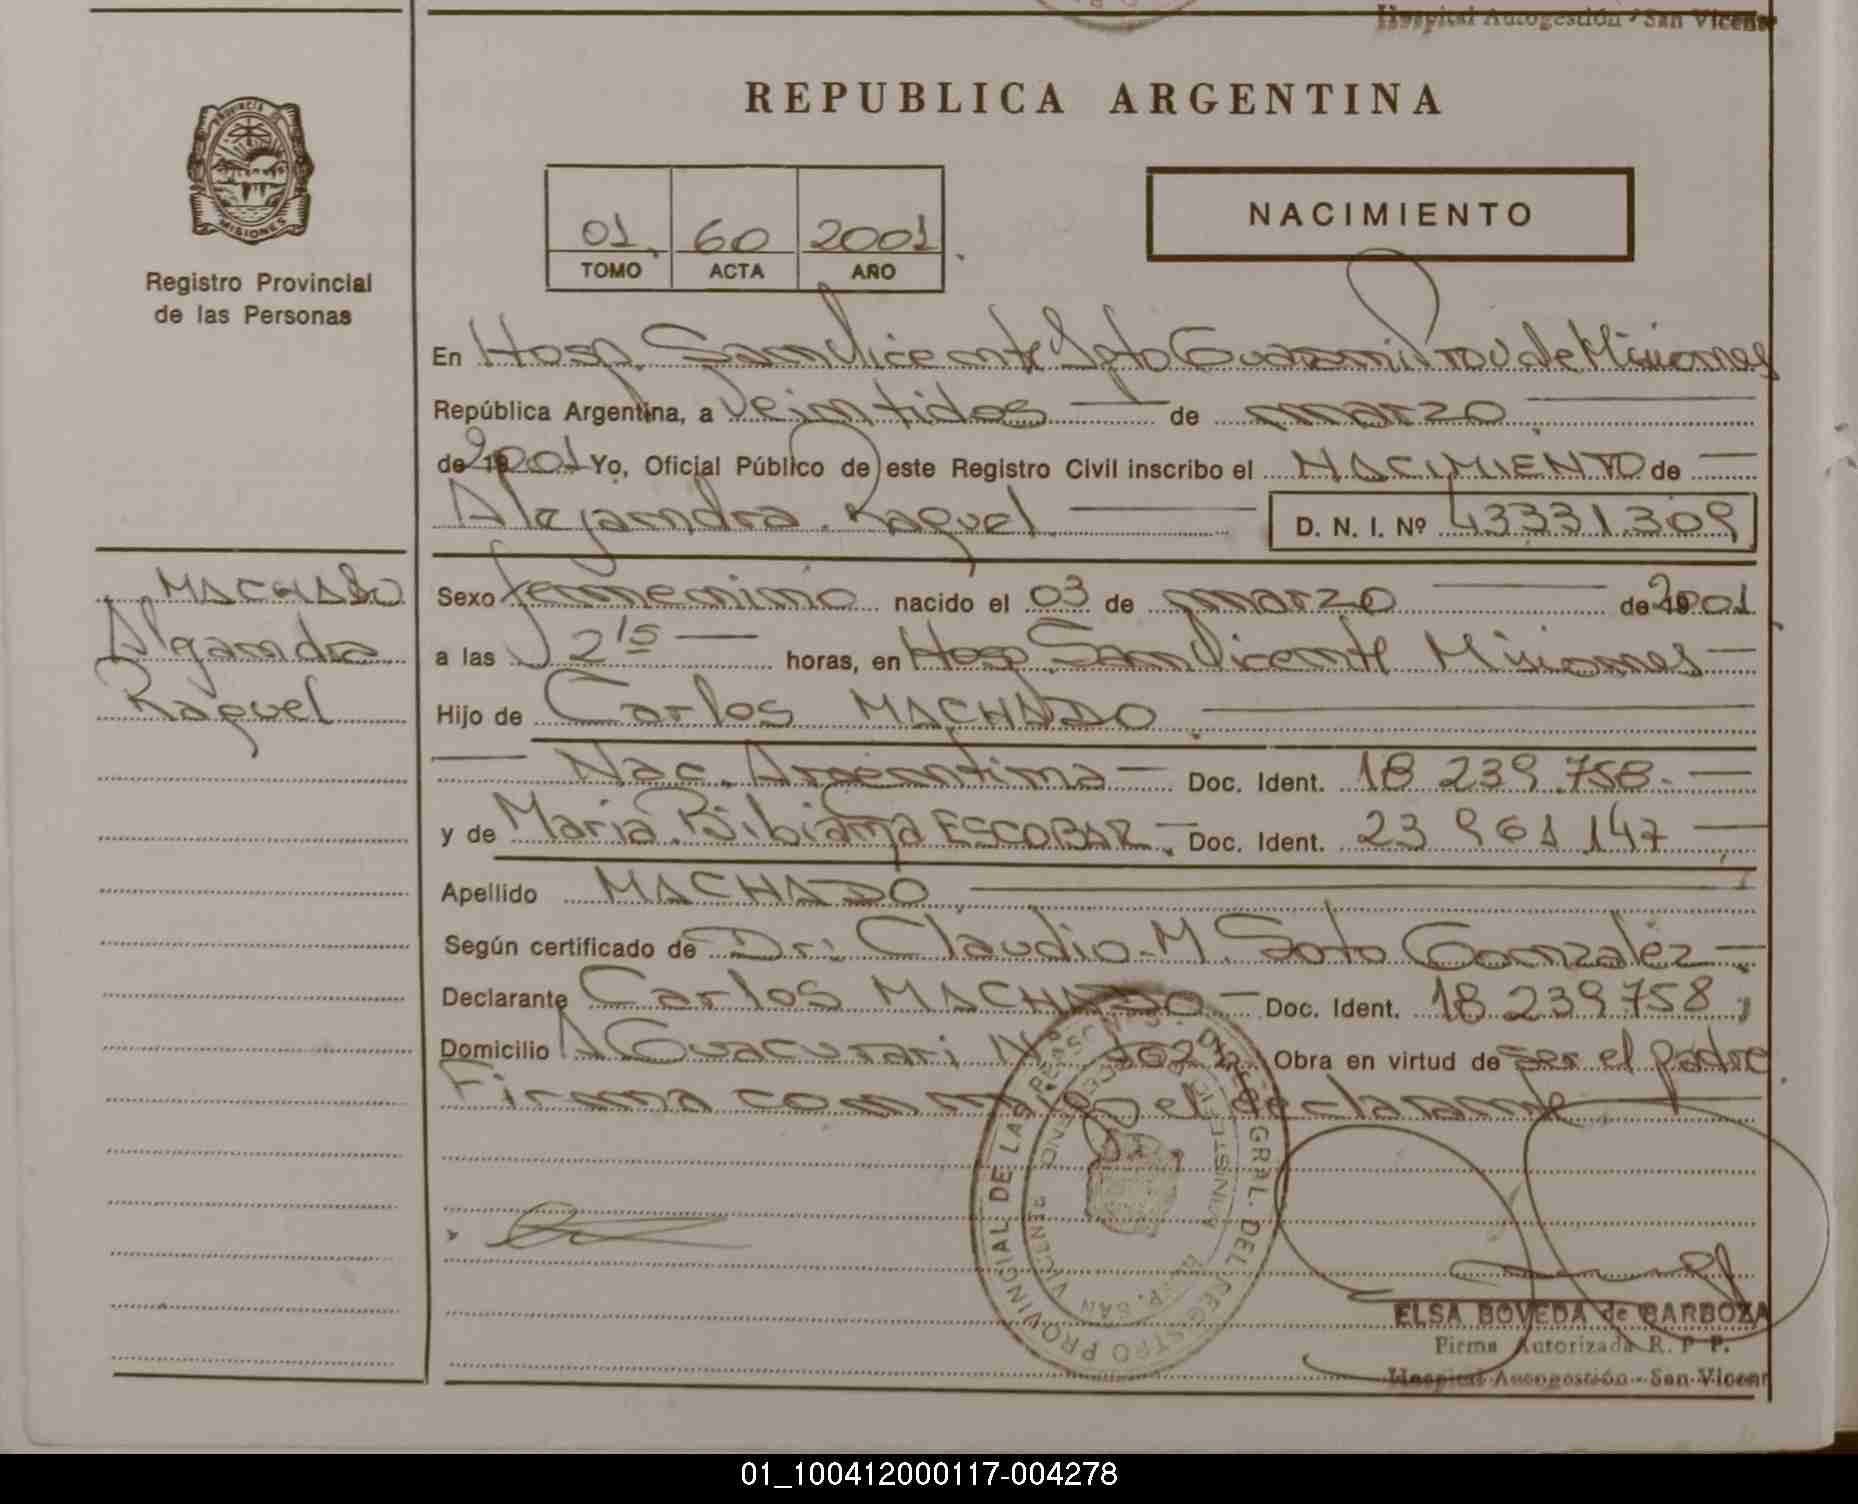 Hospital Autogestión - San Vicente
REPUBLICA ARGENTINA
PROVINCIA DE
MISIONES
Registro Provincial
de las Personas
01 60 2001
TOMO ACTA AÑO
NACIMIENTO
En Hosp. San Vicente Dpto Guarani Prov de Misiones
República Argentina, a Veintidos de marzo
de 2001 Yo, Oficial Público de este Registro Civil inscribo el NACIMIENTO de
Alejandra Raquel D. N. I. Nº 43331.309
MACHADO
Alejandra
Raquel
Sexo femenino nacido el 03 de marzo de 2001
a las 2 15 horas, en Hosp San Vicente Misiones
Hijo de Carlos MACHADO
Nac. Argentina Doc. Ident. 18 239.758
y de Maria Bibiana ESCOBAR Doc. Ident. 23 961 147
Apellido MACHADO
Según certificado de Dr: Claudio M. Soto Gonzalez
Declarante Carlos MACHADO Doc. Ident. 18 239 758
Domicilio A Guacurari Nº Obra en virtud de ser el padre
Firma conmigo el declarante
REGISTRO PROVINCIAL DE LAS PERSONAS
HOSP. SAN VICENTE
ELSA BOVEDA de BARBOZA
Firma Autorizada R. P. P.
Hospital Autogestión - San Vicent
01_100412000117-004278